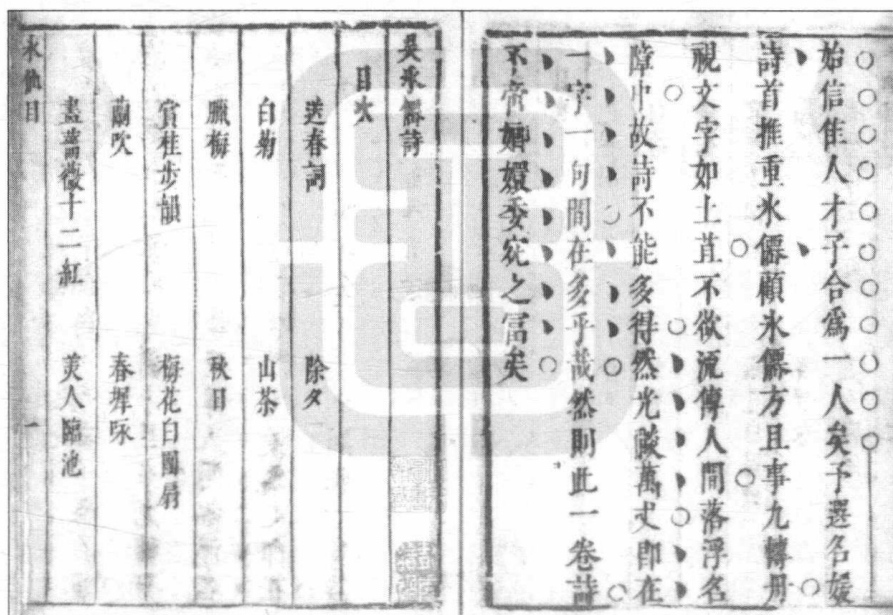 始信佳人才子合爲一人矣予選名媛
詩首推重氷僊顧氷僊方且事九轉丹
視文字如土苴不欲流傳人間落浮名
障中故詩不能多得然光燄萬丈即在
一字一句間在多乎哉然則此一卷詩
不啻嫏嬛委宛之富矣
吳氷僊詩
目次
送春詞 除夕
白菊 山茶
臘梅 秋日
賞桂步韻 梅花白團扇
蘭吹 春墀咏
畫薔薇十二紅 美人臨池
氷仙目 一